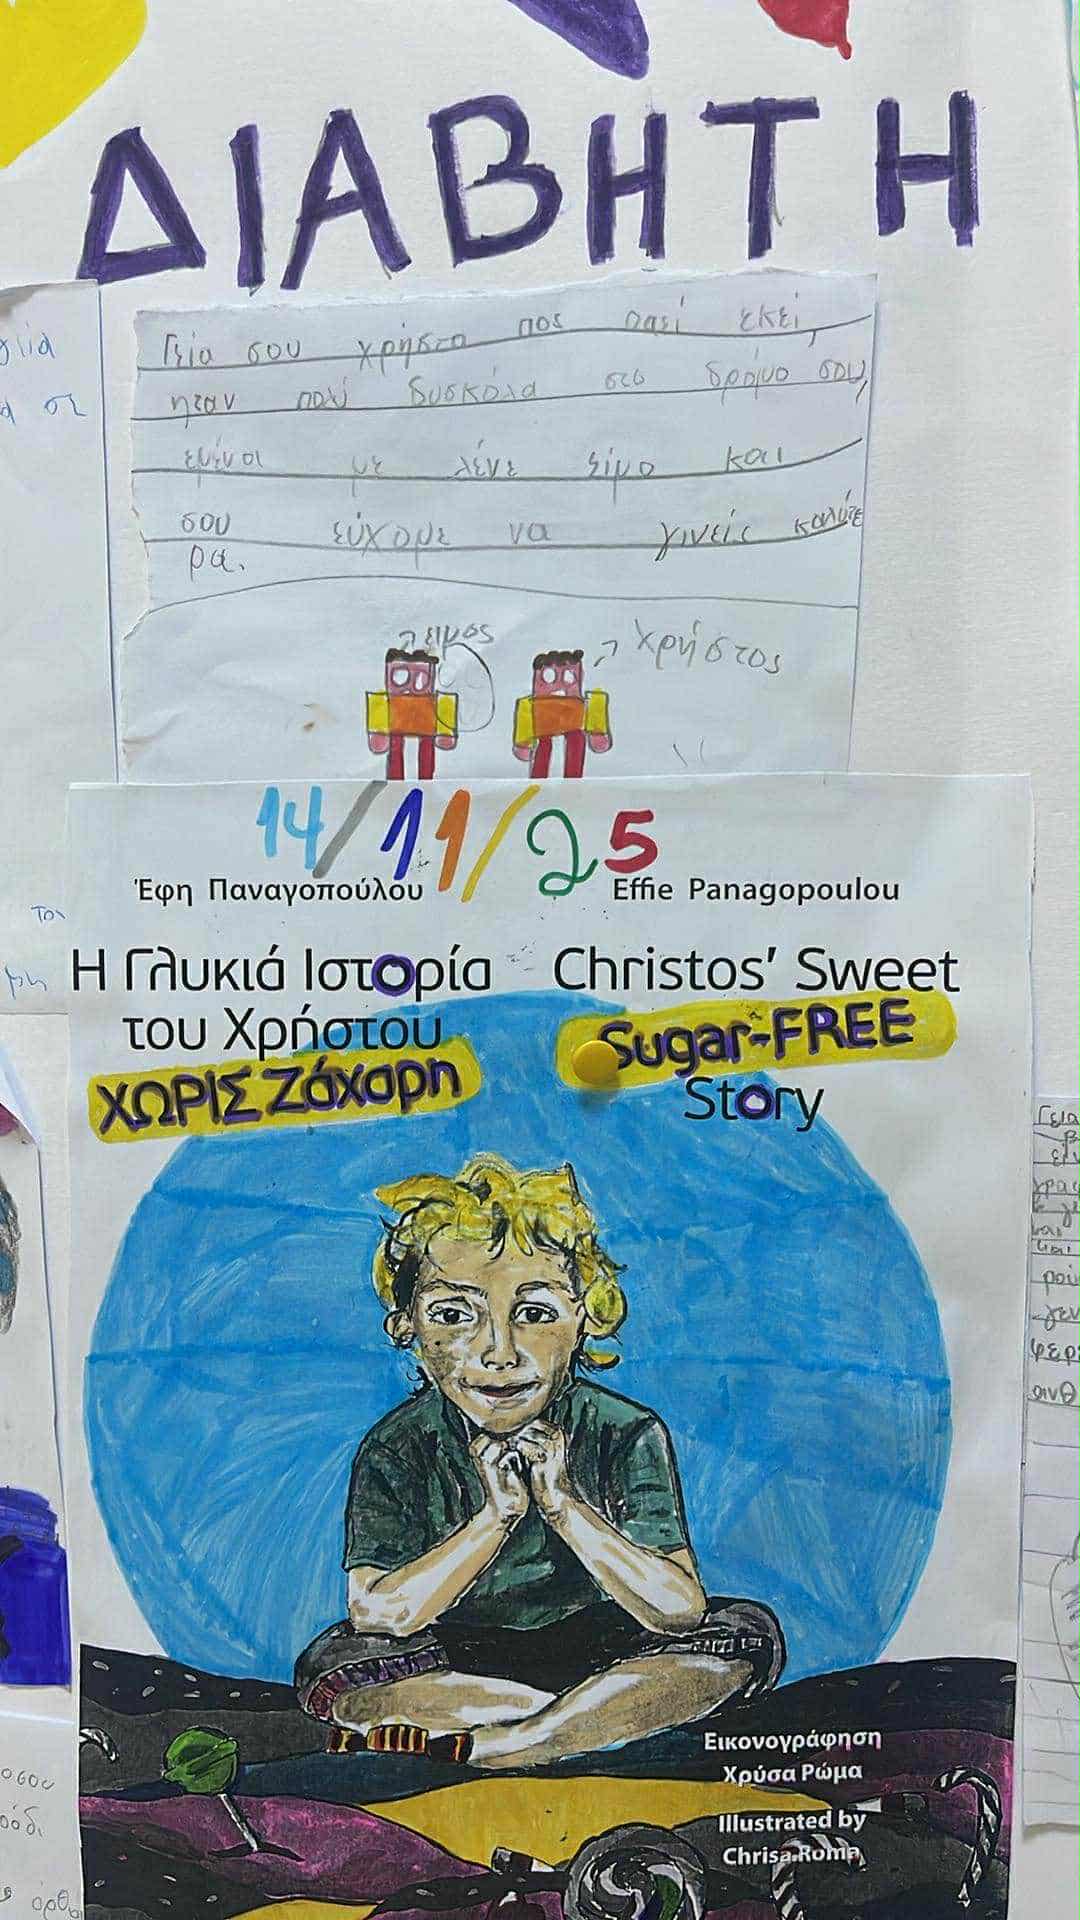 ΔΙΑΒΗΤΗ
Γεία σου χρήστο πος παεί εκεί,
ηταν πολύ δυσκόλα στο δρόμο σου,
εμένα με λένε Σίμο και
σου εύχομε να γινείς καλύτε
ρα.
Σιμος
Χρήστος
14/11/25
Έφη Παναγοπούλου
Effie Panagopoulou
Η Γλυκιά Ιστορία
του Χρήστου
ΧΩΡΙΣ Ζάχαρη
Christos' Sweet
Sugar-FREE
Story
Εικονογράφηση
Χρύσα Ρώμα
Illustrated by
Chrisa Roma